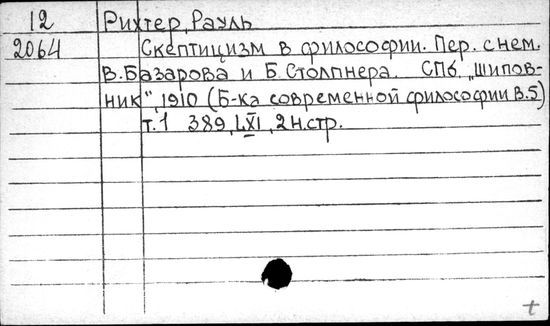 12 Рихтер, Рауль
2064 Скептицизм в философии. Пер. с нем.
В. Базарова и Б. Столпнера. СПб, "Шипов-
ник", 1910 (Б-ка современной философии В.5)
т.1 389, LXI, 2 н.стр.
t